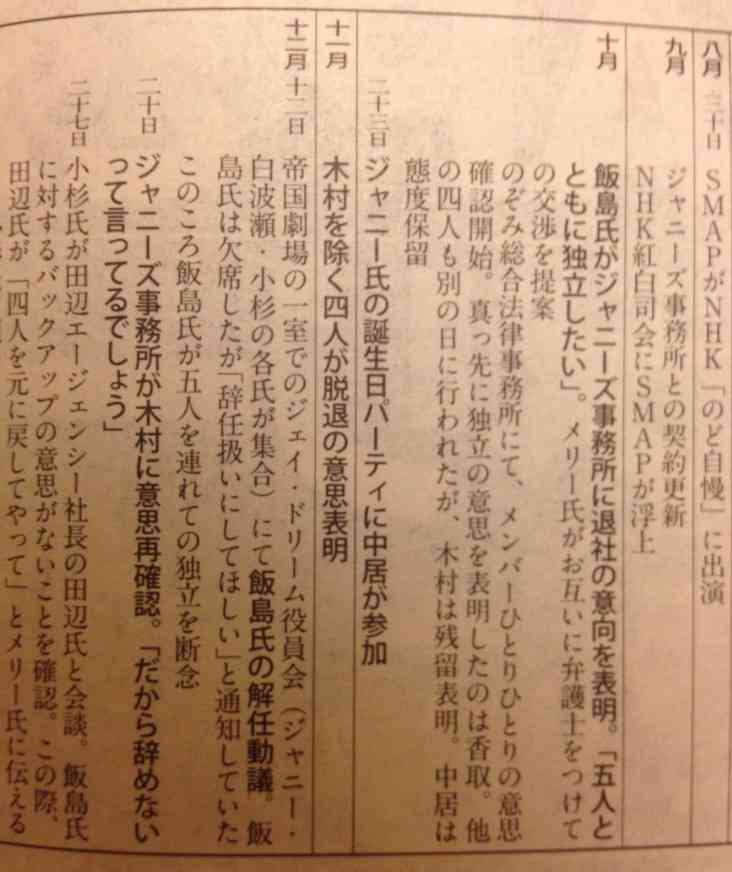 八月 三十日 SMAPがNHK「のど自慢」に出演
九月 ジャニーズ事務所との契約更新
NHK紅白司会にSMAPが浮上
十月 飯島氏がジャニーズ事務所に退社の意向を表明。「五人と
ともに独立したい」。メリー氏がお互いに弁護士をつけて
の交渉を提案
のぞみ総合法律事務所にて、メンバーひとりひとりの意思
確認開始。真っ先に独立の意思を表明したのは香取。他
の四人も別の日に行われたが、木村は残留表明。中居は
態度保留
二十三日 ジャニー氏の誕生日パーティに中居が参加
十一月 木村を除く四人が脱退の意思表明
十二月 十二日 帝国劇場の一室でのジェイ・ドリーム役員会（ジャニー・
白波瀬・小杉の各氏が集合）にて飯島氏の解任動議。飯
島氏は欠席したが「辞任扱いにしてほしい」と通知していた
このころ飯島氏が五人を連れての独立を断念
二十日 ジャニーズ事務所が木村に意思再確認。「だから辞めない
って言ってるでしょう」
二十七日 小杉氏が田辺エージェンシー社長の田辺氏と会談。飯島氏
に対するバックアップの意思がないことを確認。この際、
田辺氏が「四人を元に戻してやって」とメリー氏に伝える